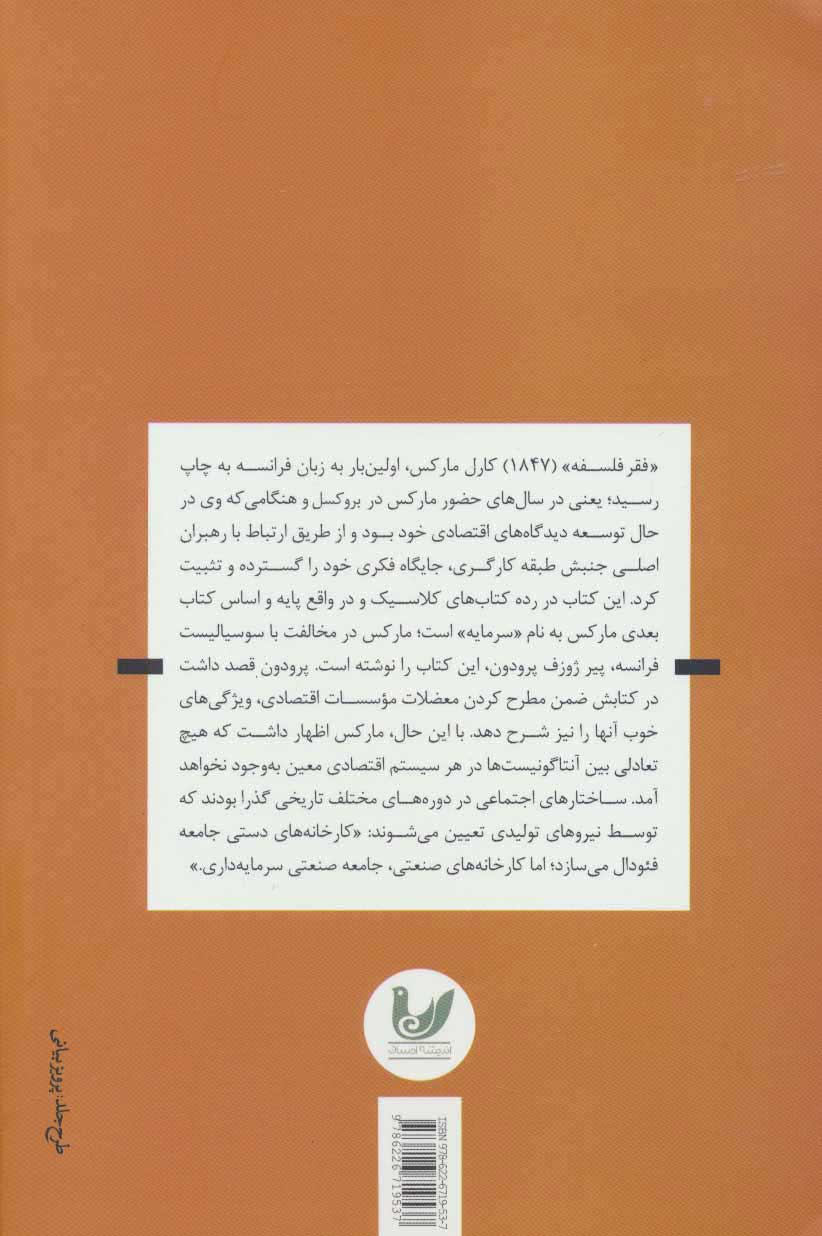 «فقر فلسفه» (۱۸۴۷) کارل مارکس، اولین‌بار به زبان فرانسه به چاپ
رسید؛ یعنی در سال‌های حضور مارکس در بروکسل و هنگامی‌که وی در
حال توسعه دیدگاه‌های اقتصادی خود بود و از طریق ارتباط با رهبران
اصلی جنبش طبقه کارگری، جایگاه فکری خود را گسترده و تثبیت
کرد. این کتاب در رده کتاب‌های کلاسیک و در واقع پایه و اساس کتاب
بعدی مارکس به نام «سرمایه» است؛ مارکس در مخالفت با سوسیالیست
فرانسه، پیر ژوزف پرودون، این کتاب را نوشته است. پرودون قصد داشت
در کتابش ضمن مطرح کردن معضلات مؤسسات اقتصادی، ویژگی‌های
خوب آنها را نیز شرح دهد. با این حال، مارکس اظهار داشت که هیچ
تعادلی بین آنتاگونیست‌ها در هر سیستم اقتصادی معین به‌وجود نخواهد
آمد. ساختارهای اجتماعی در دوره‌های مختلف تاریخی گذرا بودند که
توسط نیروهای تولیدی تعیین می‌شوند: «کارخانه‌های دستی جامعه
فئودال می‌سازد؛ اما کارخانه‌های صنعتی، جامعه صنعتی سرمایه‌داری.»
اندیشه احسان
طرح جلد: پرویز بیانی
ISBN 978-622-6719-53-7
9 786226 719537